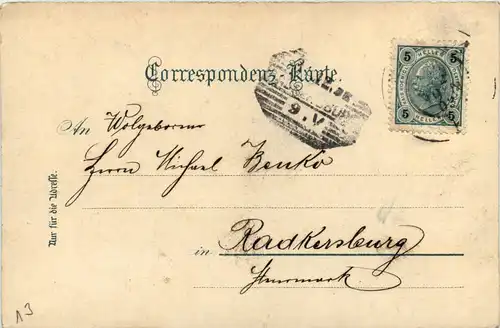 Correspondenz-Karte.
An Wolgeboren
Herrn Michael Benko
in Radkersburg
Steiermark
Nur für die Adresse.
5 5
5 5
9. V
A3